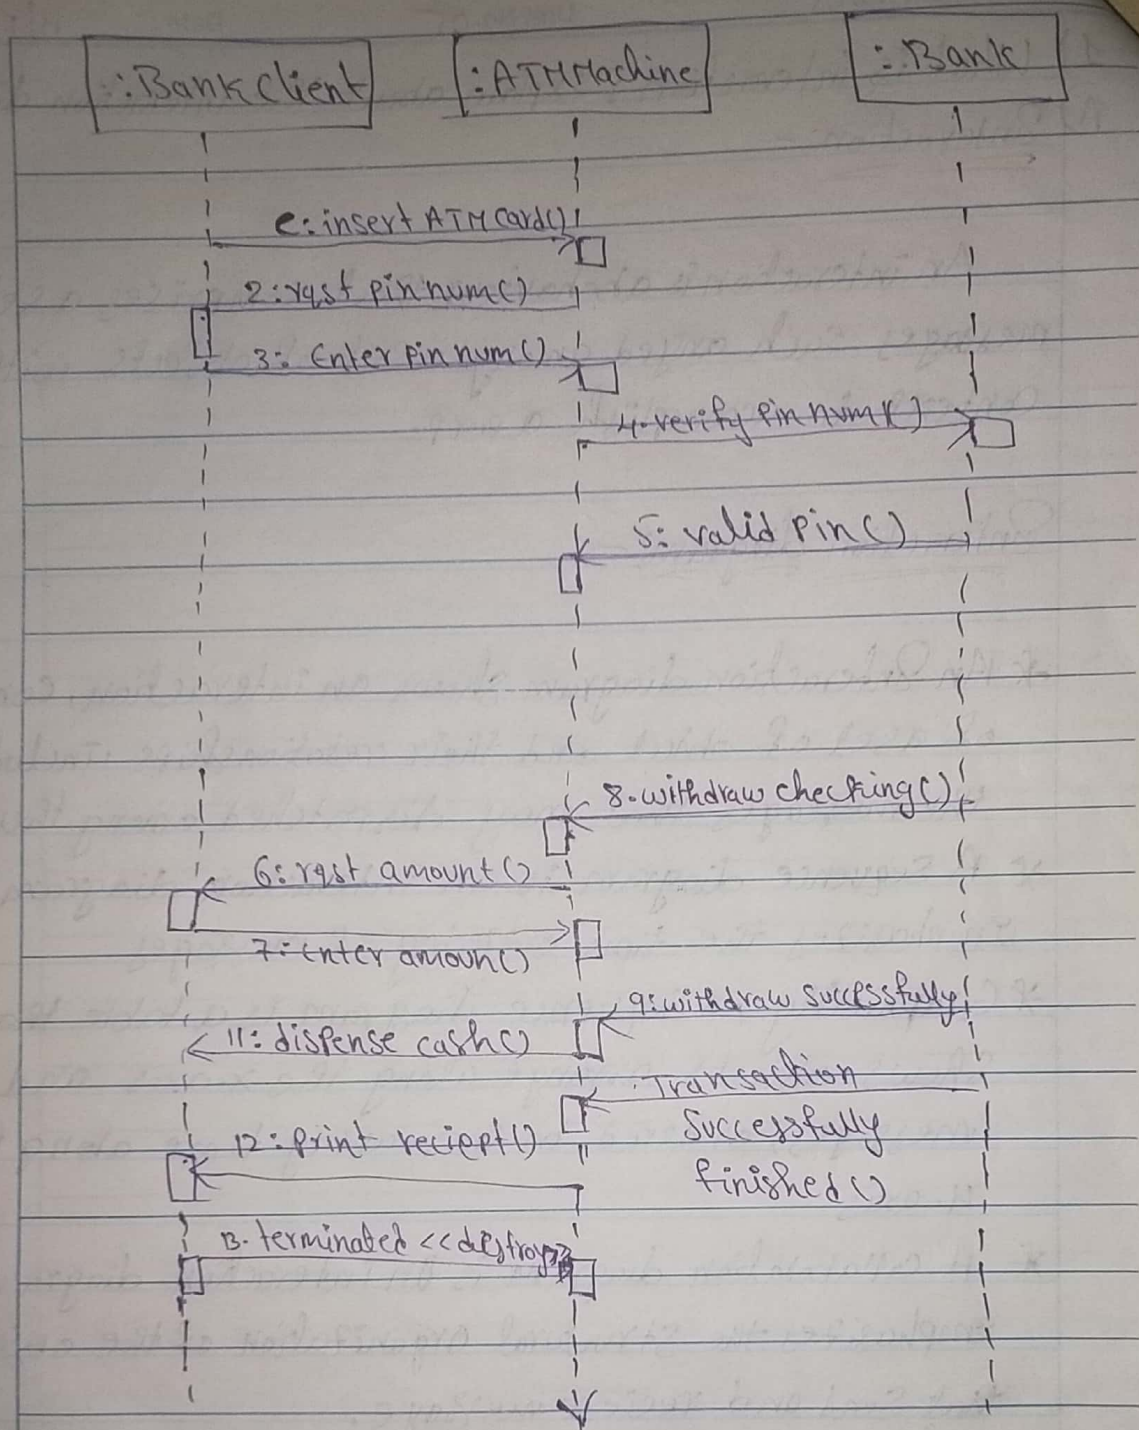 :BankClient
:ATMMachine
:Bank
e: insert ATM Card()
2: rqst pin num()
3: Enter pin num()
4. verify pin num()
5: valid pin()
8. withdraw checking()
6: rqst amount()
7: Enter amoun()
9: withdraw successfully
11: dispense cash()
Transaction
Successfully
finished()
12: print reciept()
13. terminated <<destroy>>